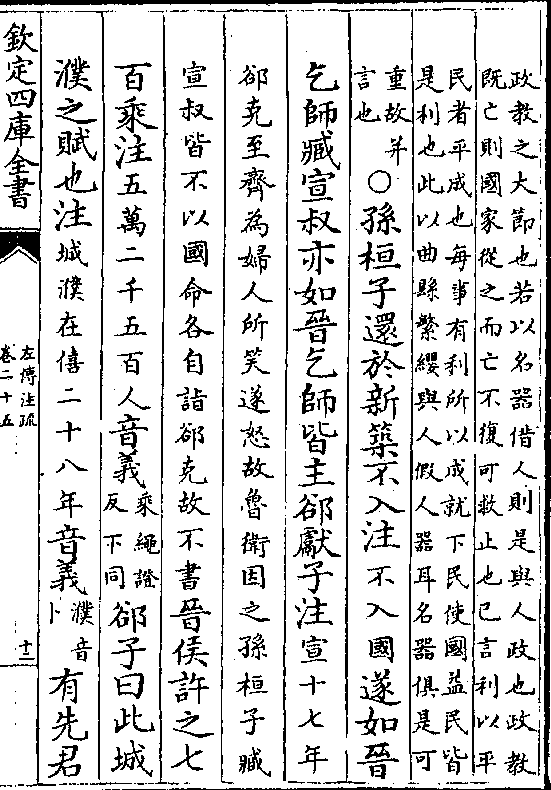 政教之大節也若以名器借人則是與人政也政教
既亡則國家從之而亡不復可救止也已言利以平
民者平成也每事有利所以成就下民使國益民皆
是利也此以曲縣繁纓與人假人器耳名器俱是可
重故并
言也
○孫桓子還於新築不入注不入國遂如晉
乞師臧宣叔亦如晉乞師皆主郤獻子注宣十七年
郤克至齊為婦人所笑遂怒故魯衛因之孫桓子臧
宣叔皆不以國命各自詣郤克故不書晉侯許之七
百乘注五萬二千五百人音義乘繩證反下同郤子曰此城
濮之賦也注城濮在僖二十八年音義濮音卜有先君
欽定四庫全書
左傳注疏
卷二十五
十二